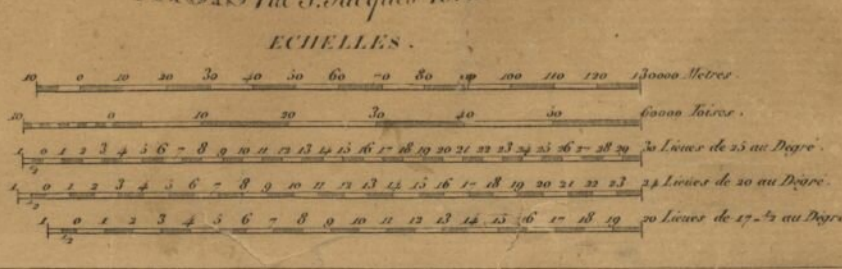 rue S. Jacques
ECHELLES.
10 0 10 20 30 40 50 60 70 80 90 100 110 120 130000 Metres.
10 0 10 20 30 40 50 60000 Toises.
1 1/2 0 1 2 3 4 5 6 7 8 9 10 11 12 13 14 15 16 17 18 19 20 21 22 23 24 25 26 27 28 29 30 Lieues de 25 au Dégré.
1 1/2 0 1 2 3 4 5 6 7 8 9 10 11 12 13 14 15 16 17 18 19 20 21 22 23 24 Lieues de 20 au Dégré.
1 1/2 0 1 2 3 4 5 6 7 8 9 10 11 12 13 14 15 16 17 18 19 20 Lieues de 17 1/2 au Dégré